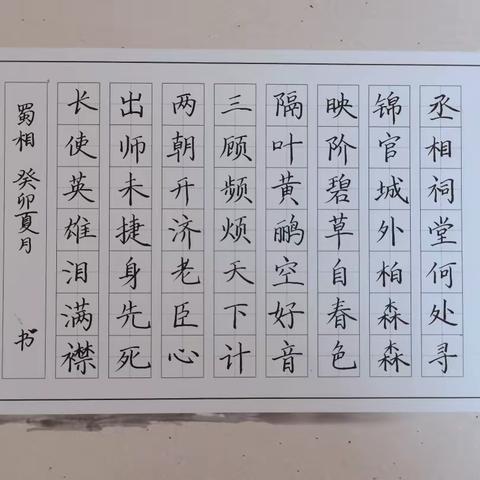 丞相祠堂何处寻
锦官城外柏森森
映阶碧草自春色
隔叶黄鹂空好音
三顾频烦天下计
两朝开济老臣心
出师未捷身先死
长使英雄泪满襟
蜀相 癸卯夏月 书